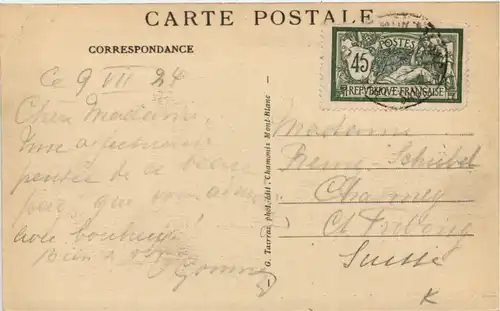 CARTE POSTALE
CORRESPONDANCE
Ce 9 VII 24
Chère Madame,
Une affectueuse
pensée de ce beau
pays, que vous
avec bonheur!
Bien à
POSTES
45
RÉPUBLIQUE FRANÇAISE
G. Tairraz, phot.-édit., Chamonix Mont-Blanc
Madame
Remy-Schibel
Charmey
Ct Fribourg
Suisse
K